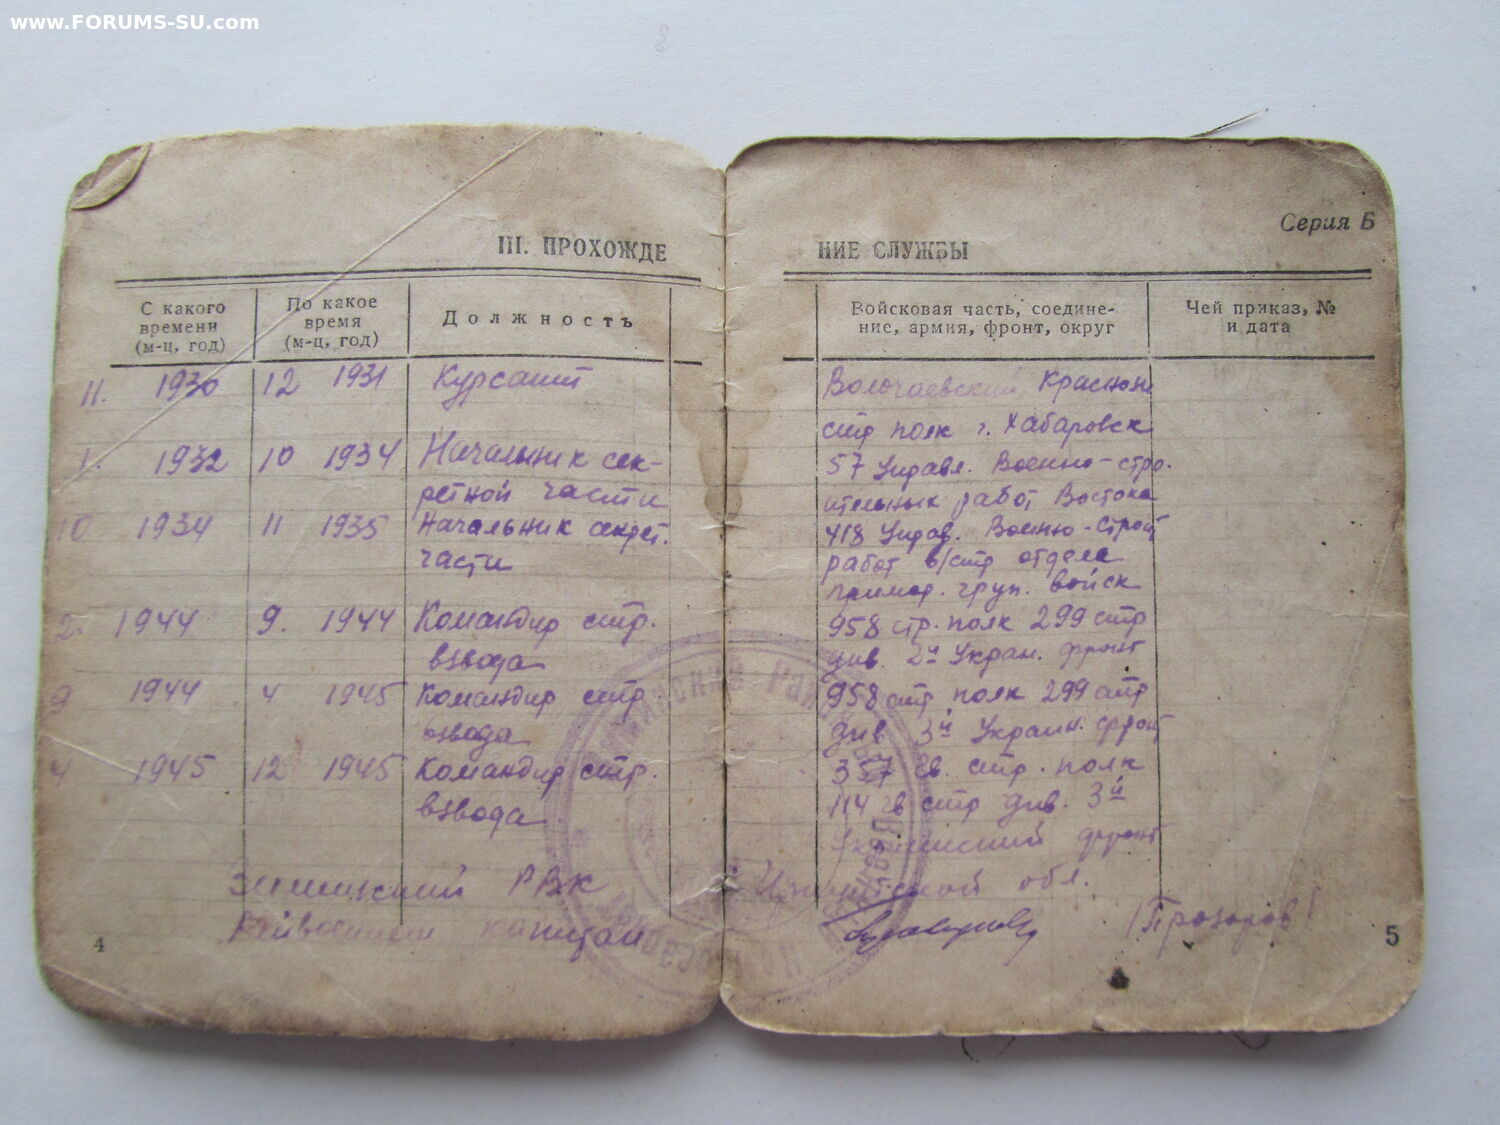 www.FORUMS-SU.com
Серия Б
III. ПРОХОЖДЕ НИЕ СЛУЖБЫ
С какого времени (м-ц, год)
По какое время (м-ц, год)
Должность
Войсковая часть, соедине-
ние, армия, фронт, округ
Чей приказ, №
и дата
11. 1930 12 1931 Курсант Волочаевский Краснозн
стр полк г. Хабаровск
1. 1932 10 1934 Начальник сек- 57 Управл. Военно-стро.
ретной части ительных работ Востока
10 1934 11 1935 Начальник секрет. 418 Управ. Военно-Строит
части работ в/стр отдела
примор. груп. войск
2. 1944 9. 1944 Командир стр. 958 стр. полк 299 стр
взвода див. 2й Украи. фронт
9 1944 4 1945 Командир стр. 958 стр полк 299 стр
взвода див 3й Украин. фронт
4 1945 12 1945 Командир стр. 357 гв. стр. полк
взвода 114 гв стр див. 3й
Украинский фронт
Зиминский РВК Иркутской обл.
Райвоенком капитан (Прозоров)
4
5